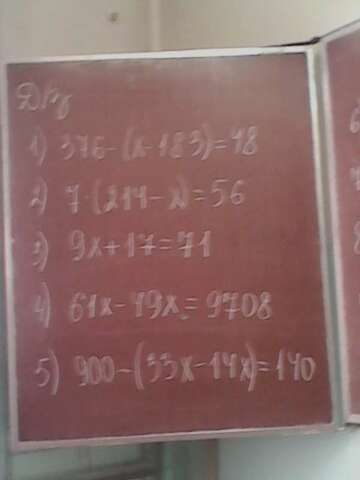 Д/з
1) 376-(x-183)=48
2) 7·(214-x)=56
3) 9x+17=71
4) 61x-49x=9708
5) 900-(33x-14x)=140